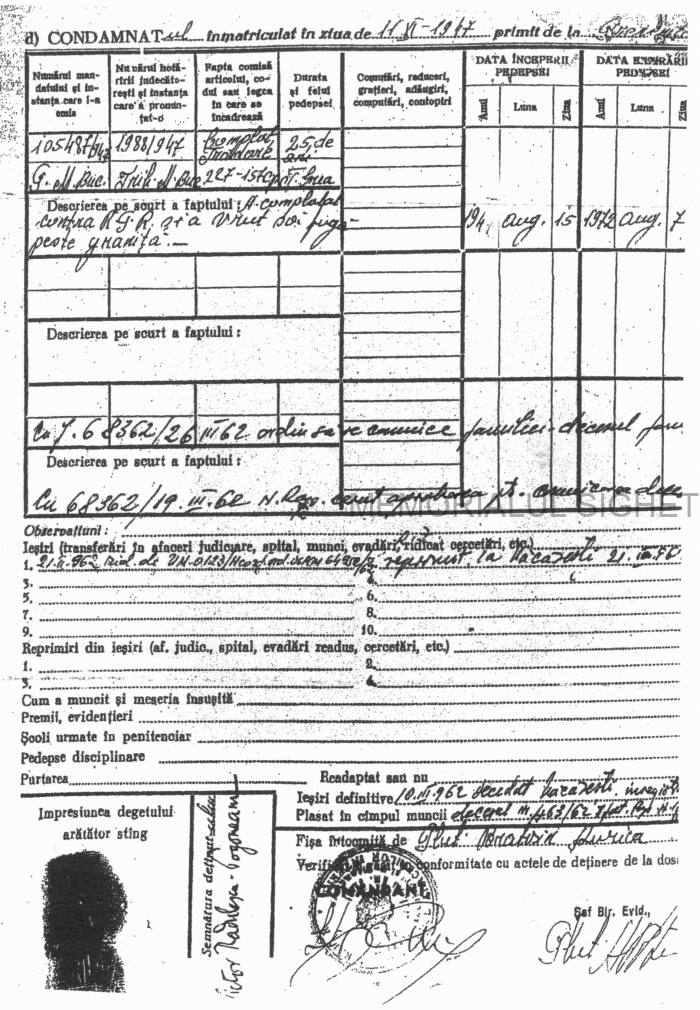 d) CONDAMNATul înmatriculat în ziua de 11 XI-1947 primit de la
Numărul mandatului și instanța care l-a emis
Numărul hotărîrii judecătorești și instanța care a pronunțat-o
Fapta comisă articolul, codul sau legea în care se încadrează
Durata și felul pedepsei
Comutări, reduceri, grațieri, adăugiri, computări, contopiri
DATA ÎNCEPERII PEDEPSEI
Anul Luna Ziua
DATA EXPIRĂRII PEDEPSEI
Anul Luna
105487/947 1988/947 Complot 25 de ani
T. M. Buc. Trib. M. Buc 227-157 cp T. Grea
Descrierea pe scurt a faptului: A complotat
contra R.G.R. și a vrut să fugă
peste graniță.—
194 aug. 15 1972 aug. 7
Descrierea pe scurt a faptului:
Cu 68362/26 III 62 ordin să se comunice familiei decesul
Descrierea pe scurt a faptului:
Cu 68362/19. III-62 cerut aprobarea pt. comunicarea
MEMORIALUL SIGHET
Observațiuni:
Ieșiri (transferări în afaceri judiciare, spital, munci, evadări, ridicat cercetări, etc.)
1. 21.II.962 rid. de reprimit la Văcărești 21.
3. 4.
5. 6.
7. 8.
9. 10.
Reprimiri din ieșiri (af. judic., spital, evadări readus, cercetări, etc.)
1. 2.
3. 4.
Cum a muncit și meseria însușită
Premii, evidențieri
Școli urmate în penitenciar
Pedepse disciplinare
Purtarea Readaptat sau nu
Ieșiri definitive 10.III.962 decedat Văcărești. înregistr
Plasat în cîmpul muncii decesul nr 463/62
Impresiunea degetului arătător sting
Semnătura deținutului
Victor Rădulescu-Pogoneanu
Fișa întocmită de Plut.
Verificat în conformitate cu actele de deținere de la dosa
COMANDANT,
Șef Bir. Evid.,
Plut